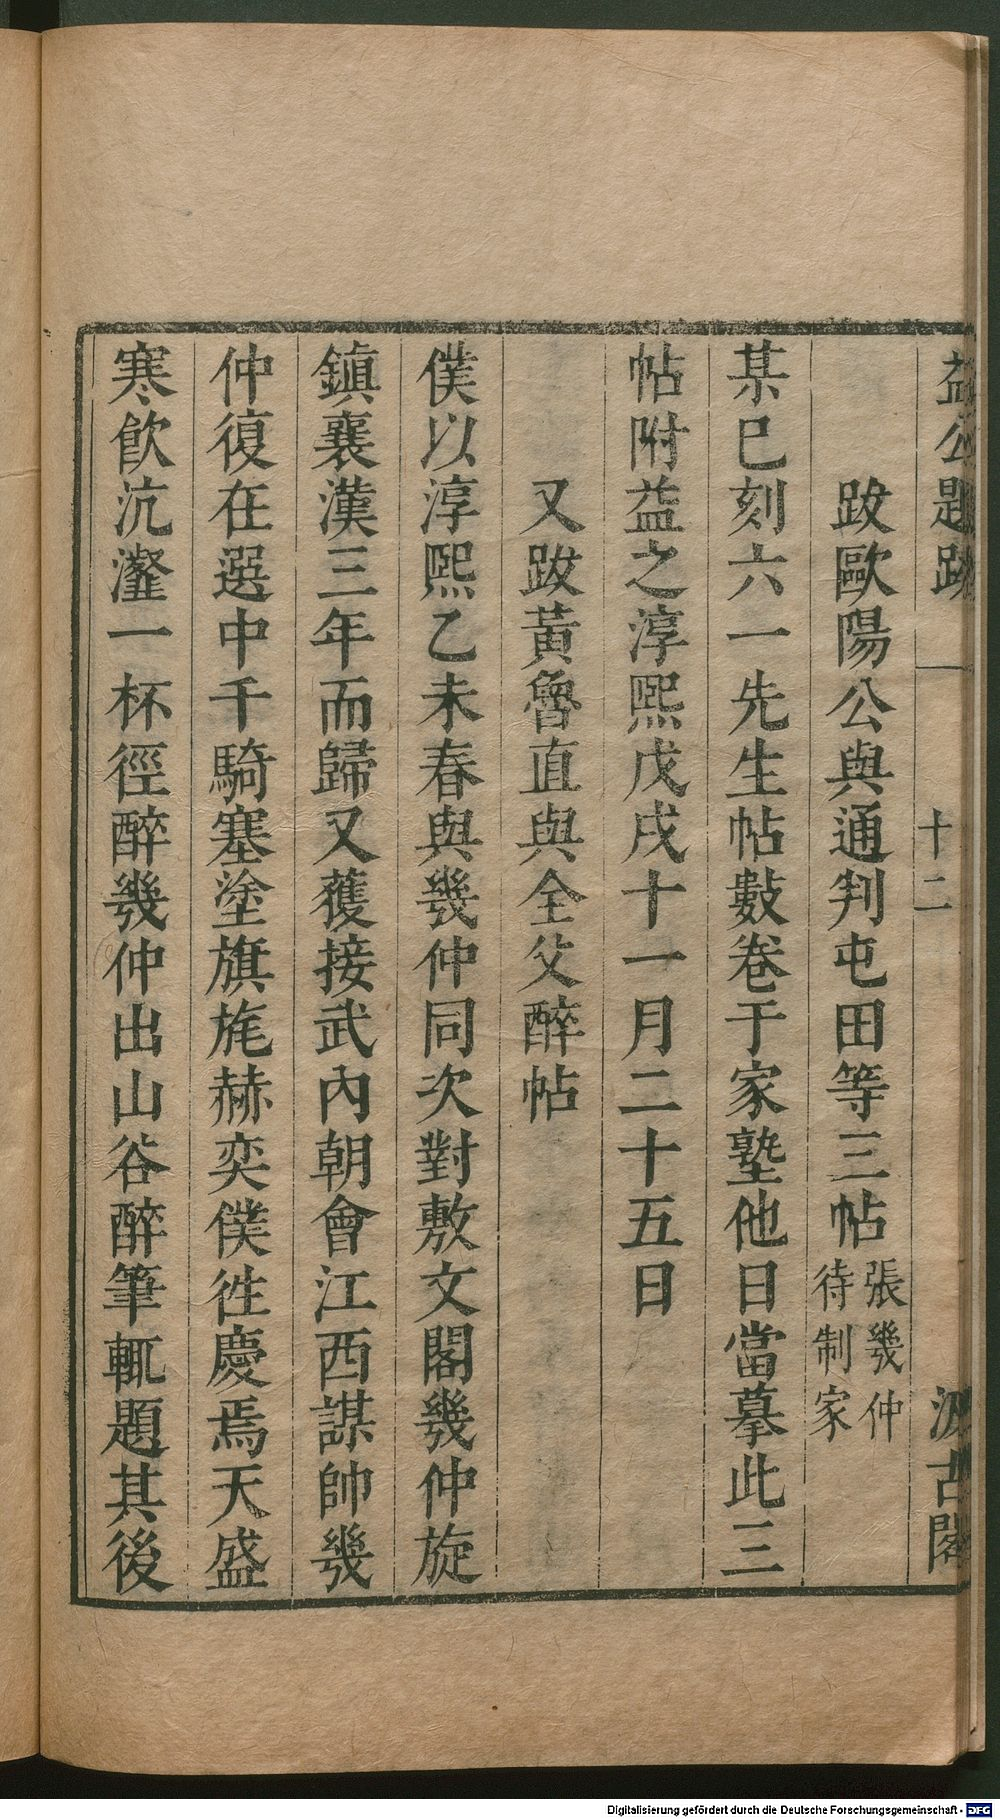 益公題跋 一 十二 汲古閣
跋歐陽公與通判屯田等三帖 張幾仲待制家
某已刻六一先生帖數卷于家塾他日當摹此三
帖附益之淳熙戊戌十一月二十五日
又跋黃魯直與全父醉帖
僕以淳熙乙未春與幾仲同次對敷文閣幾仲旋
鎮襄漢三年而歸又獲接武內朝會江西謀帥幾
仲復在選中千騎塞塗旗旄赫奕僕徃慶焉天盛
寒飲沆瀣一杯徑醉幾仲出山谷醉筆輒題其後
Digitalisierung gefördert durch die Deutsche Forschungsgemeinschaft - DFG